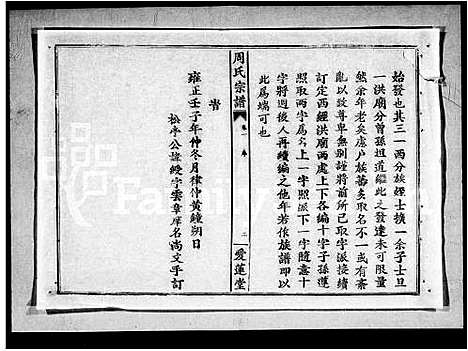 始發也其三一西分族經士擴一余子士旦
一洪廟分曾孫坦道繼此之發達未可限量
然余年老矣慮戶族蕃多取名不一或有紊
亂以致尊卑無別謹將前所已取字派接續
訂定西經洪廟兩處上下各編十字子孫遵
照取兩字爲名上一字照派下一字隨意十
字將週後人再續編之他年若修族譜即以
此爲端可也
時
雍正壬子年仲冬月律仲黃鐘朔日
松亭公諱經字雲章庠名尚文手訂
周氏宗譜
卷一
二
愛蓮堂